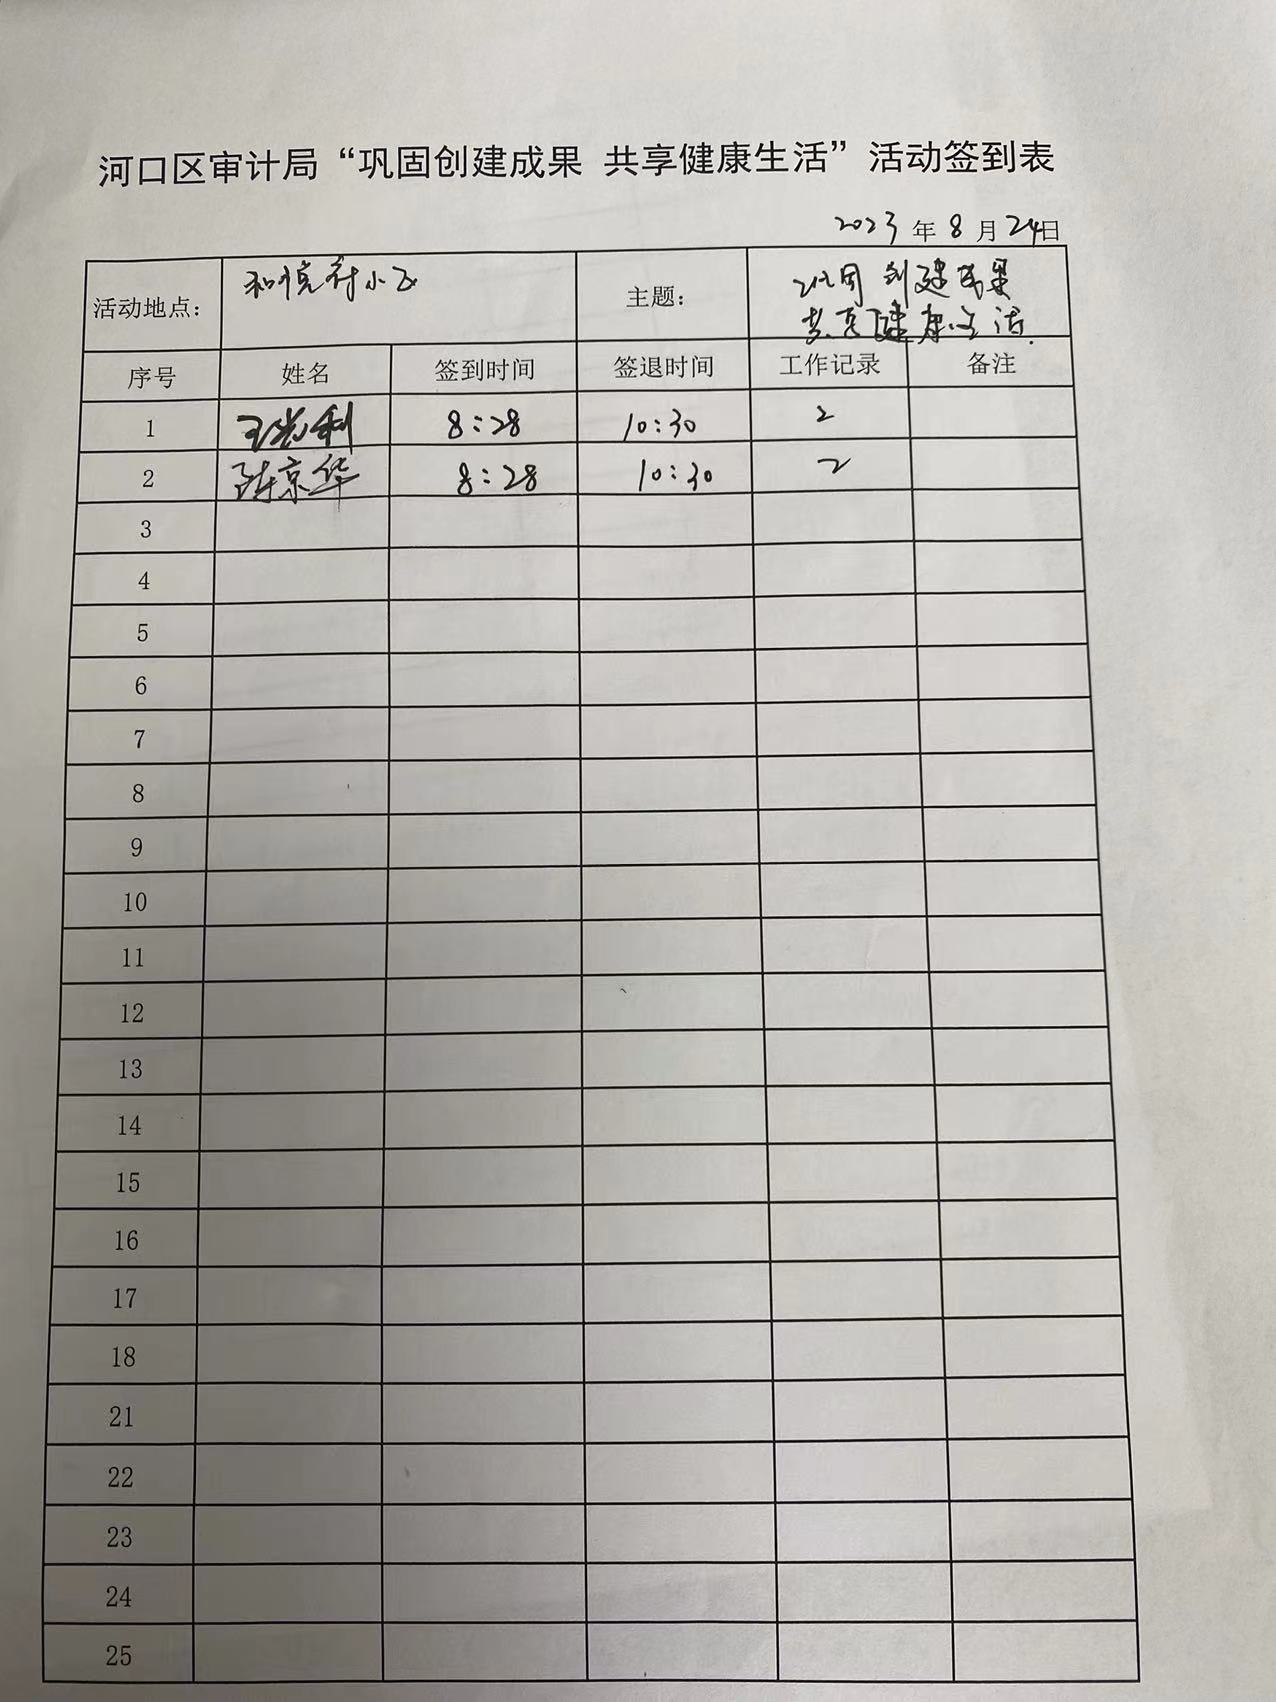 河口区审计局“巩固创建成果 共享健康生活”活动签到表
2023年8月24日
活动地点： 和悦府小区 主题： 巩固创建成果
共享健康生活.
序号 姓名 签到时间 签退时间 工作记录 备注
1 8:28 10:30 2
2 陈京华 8:28 10:30 2
3
4
5
6
7
8
9
10
11
12
13
14
15
16
17
18
21
22
23
24
25